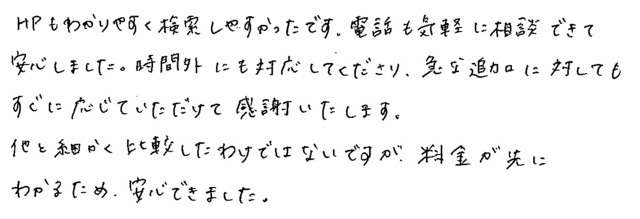 HPもわかりやすく検索しやすかったです。電話も気軽に相談できて
安心しました。時間外にも対応してくださり、急な追加に対しても
すぐに応じていただけて感謝いたします。
他と細かく比較したわけではないですが、料金が先に
わかるため、安心できました。